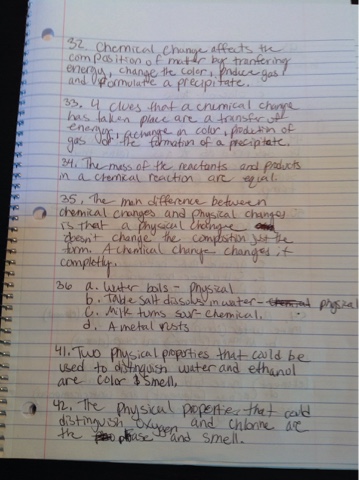 32. Chemical Change affects the
composition of mater by tranfering
energy, change the color, produce gas
and formulate a precipitate.
33. 4 clues that a chemical change
has taken place are a transfer of
energy, a change in color, prodection of
gas or the formation of a preciptate.
34. The mass of the reactants and products
in a chemical reaction are equal.
35. The main difference between
chemical changes and physical changes
is that a physical change
doesn't change the compostion just the
form. A chemical change changes it
completly.
36 a. Water boils - physical
b. Table salt disolves in water - physical
c. Milk turns sour - chemical.
d. A metal rusts
41. Two physical properties that could be
used to distinguish water and ethanol
are color & smell.
42. The physical properties that could
distinguish oxygen and chlorine are
the phase and smell.